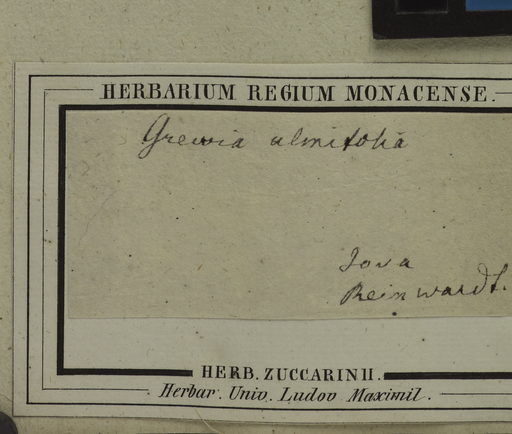 HERBARIUM REGIUM MONACENSE.
Grewia ulmifolia
Java
Reinwardt.
HERB. ZUCCARINII.
Herbar. Univ. Ludov Maximil.